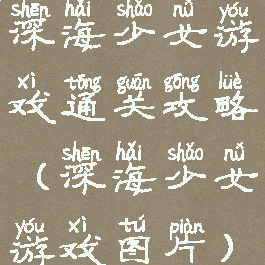 shēn hǎi shǎo nǚ yóu
深海少女游
xì tōng guān gōng lüè
戏通关攻略
shēn hǎi shǎo nǚ
（深海少女
yóu xì tú piàn
游戏图片）